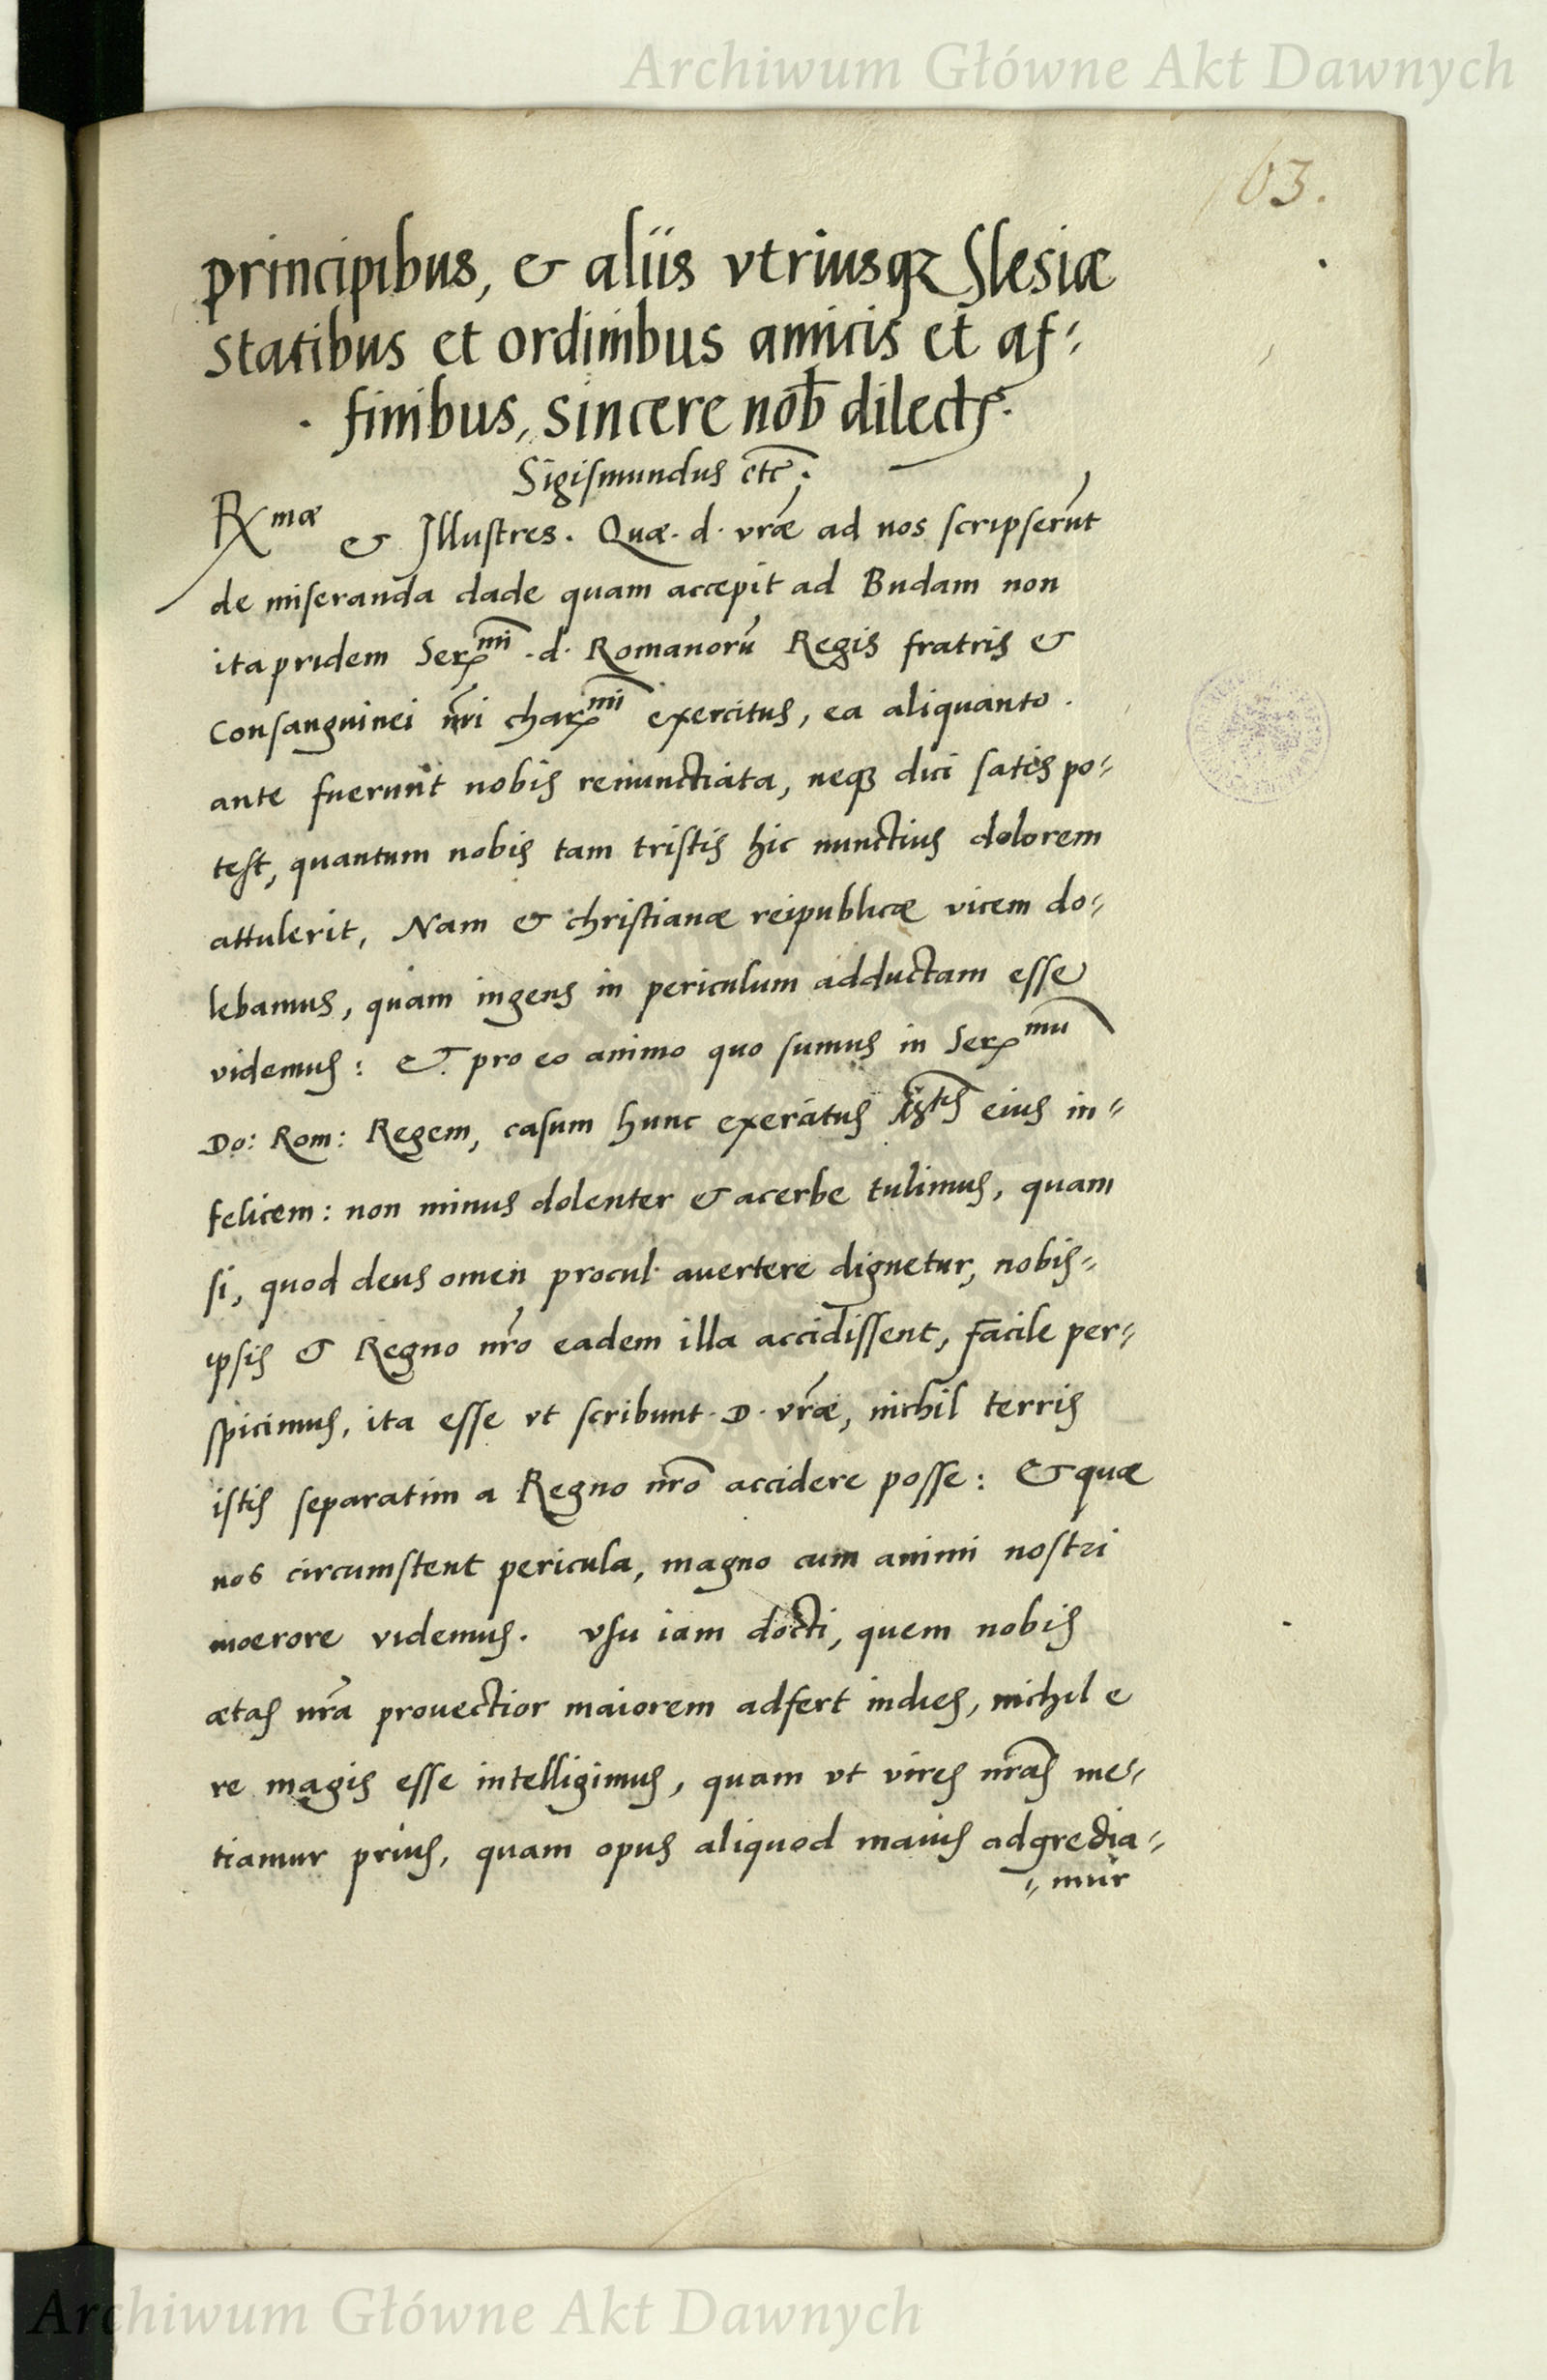 Archiwum Główne Akt Dawnych
63.
principibus, & aliis vtriusqȝ Slesiæ
statibus et ordinibus amicis et af-
finibus, sincere nob̄ dilectis.
Sigismundus etc̄;
Rx^mæ & Illustres. Quæ. d. vr̃æ ad nos scripserũt
de miseranda clade quam accepit ad Budam non
ita pridem Ser^mi .d. Romanorũ Regis fratris &
Consanguinei nr̃i char^mi exercitus, ea aliquanto.
ante fuerunt nobis renunctiata, neqȝ dici satis po-
test, quantum nobis tam tristis hic nunctius dolorem
attulerit, Nam & christianæ reipublicæ vicem do-
lebamus, quam ingens in periculum adductam esse
videmus: & pro eo animo quo sumus in Ser^mu
Do: Rom: Regem, casum hunc exercitus eius in-
felicem: non minus dolenter & acerbe tulimus, quam
si, quod deus omen procul auertere dignetur, nobis-
ipsis & Regno nr̃o eadem illa accidissent, facile per-
spicimus, ita esse vt scribunt. D. vr̃æ, nichil terris
istis separatim a Regno nr̃o accidere posse: & quæ
nos circumstent pericula, magno cum animi nostri
moerore videmus. Vsu iam docti, quem nobis
ætas nr̃a prouectior maiorem adfert indies, nichil e
re magis esse intelligimus, quam vt vires nr̃as me-
tiamur prius, quam opus aliquod maius adgredia-
-mur
Archiwum Główne Akt Dawnych